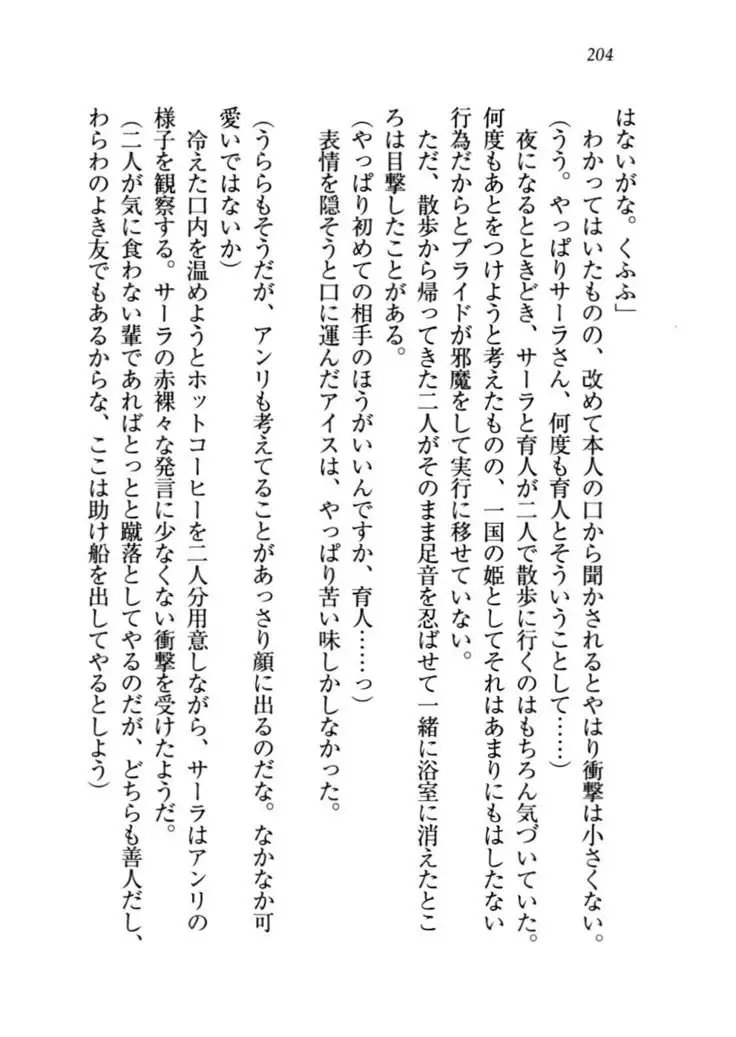 204
はないがな。くふふ」
わかってはいたものの、改めて本人の口から聞かされるとやはり衝撃は小さくない。
(うう。やっぱりサーラさん、何度も育人とそういうことして……)
夜になるとときどき、サーラと育人が二人で散歩に行くのはもちろん気づいていた。
何度もあとをつけようと考えたものの、一国の姫としてそれはあまりにもはしたない
行為だからとプライドが邪魔をして実行に移せていない。
ただ、散歩から帰ってきた二人がそのまま足音を忍ばせて一緒に浴室に消えたとこ
ろは目撃したことがある。
(やっぱり初めての相手のほうがいいんですか、育人……っ)
表情を隠そうと口に運んだアイスは、やっぱり苦い味しかしなかった。
(うららもそうだが、アンリも考えてることがあっさり顔に出るのだな。なかなか可
愛いではないか)
冷えた口内を温めようとホットコーヒーを二人分用意しながら、サーラはアンリの
様子を観察する。サーラの赤裸々な発言に少なくない衝撃を受けたようだ。
(二人が気に食わない輩であればとっとと蹴落としてやるのだが、どちらも善人だし、
わらわのよき友でもあるからな、ここは助け船を出してやるとしよう)